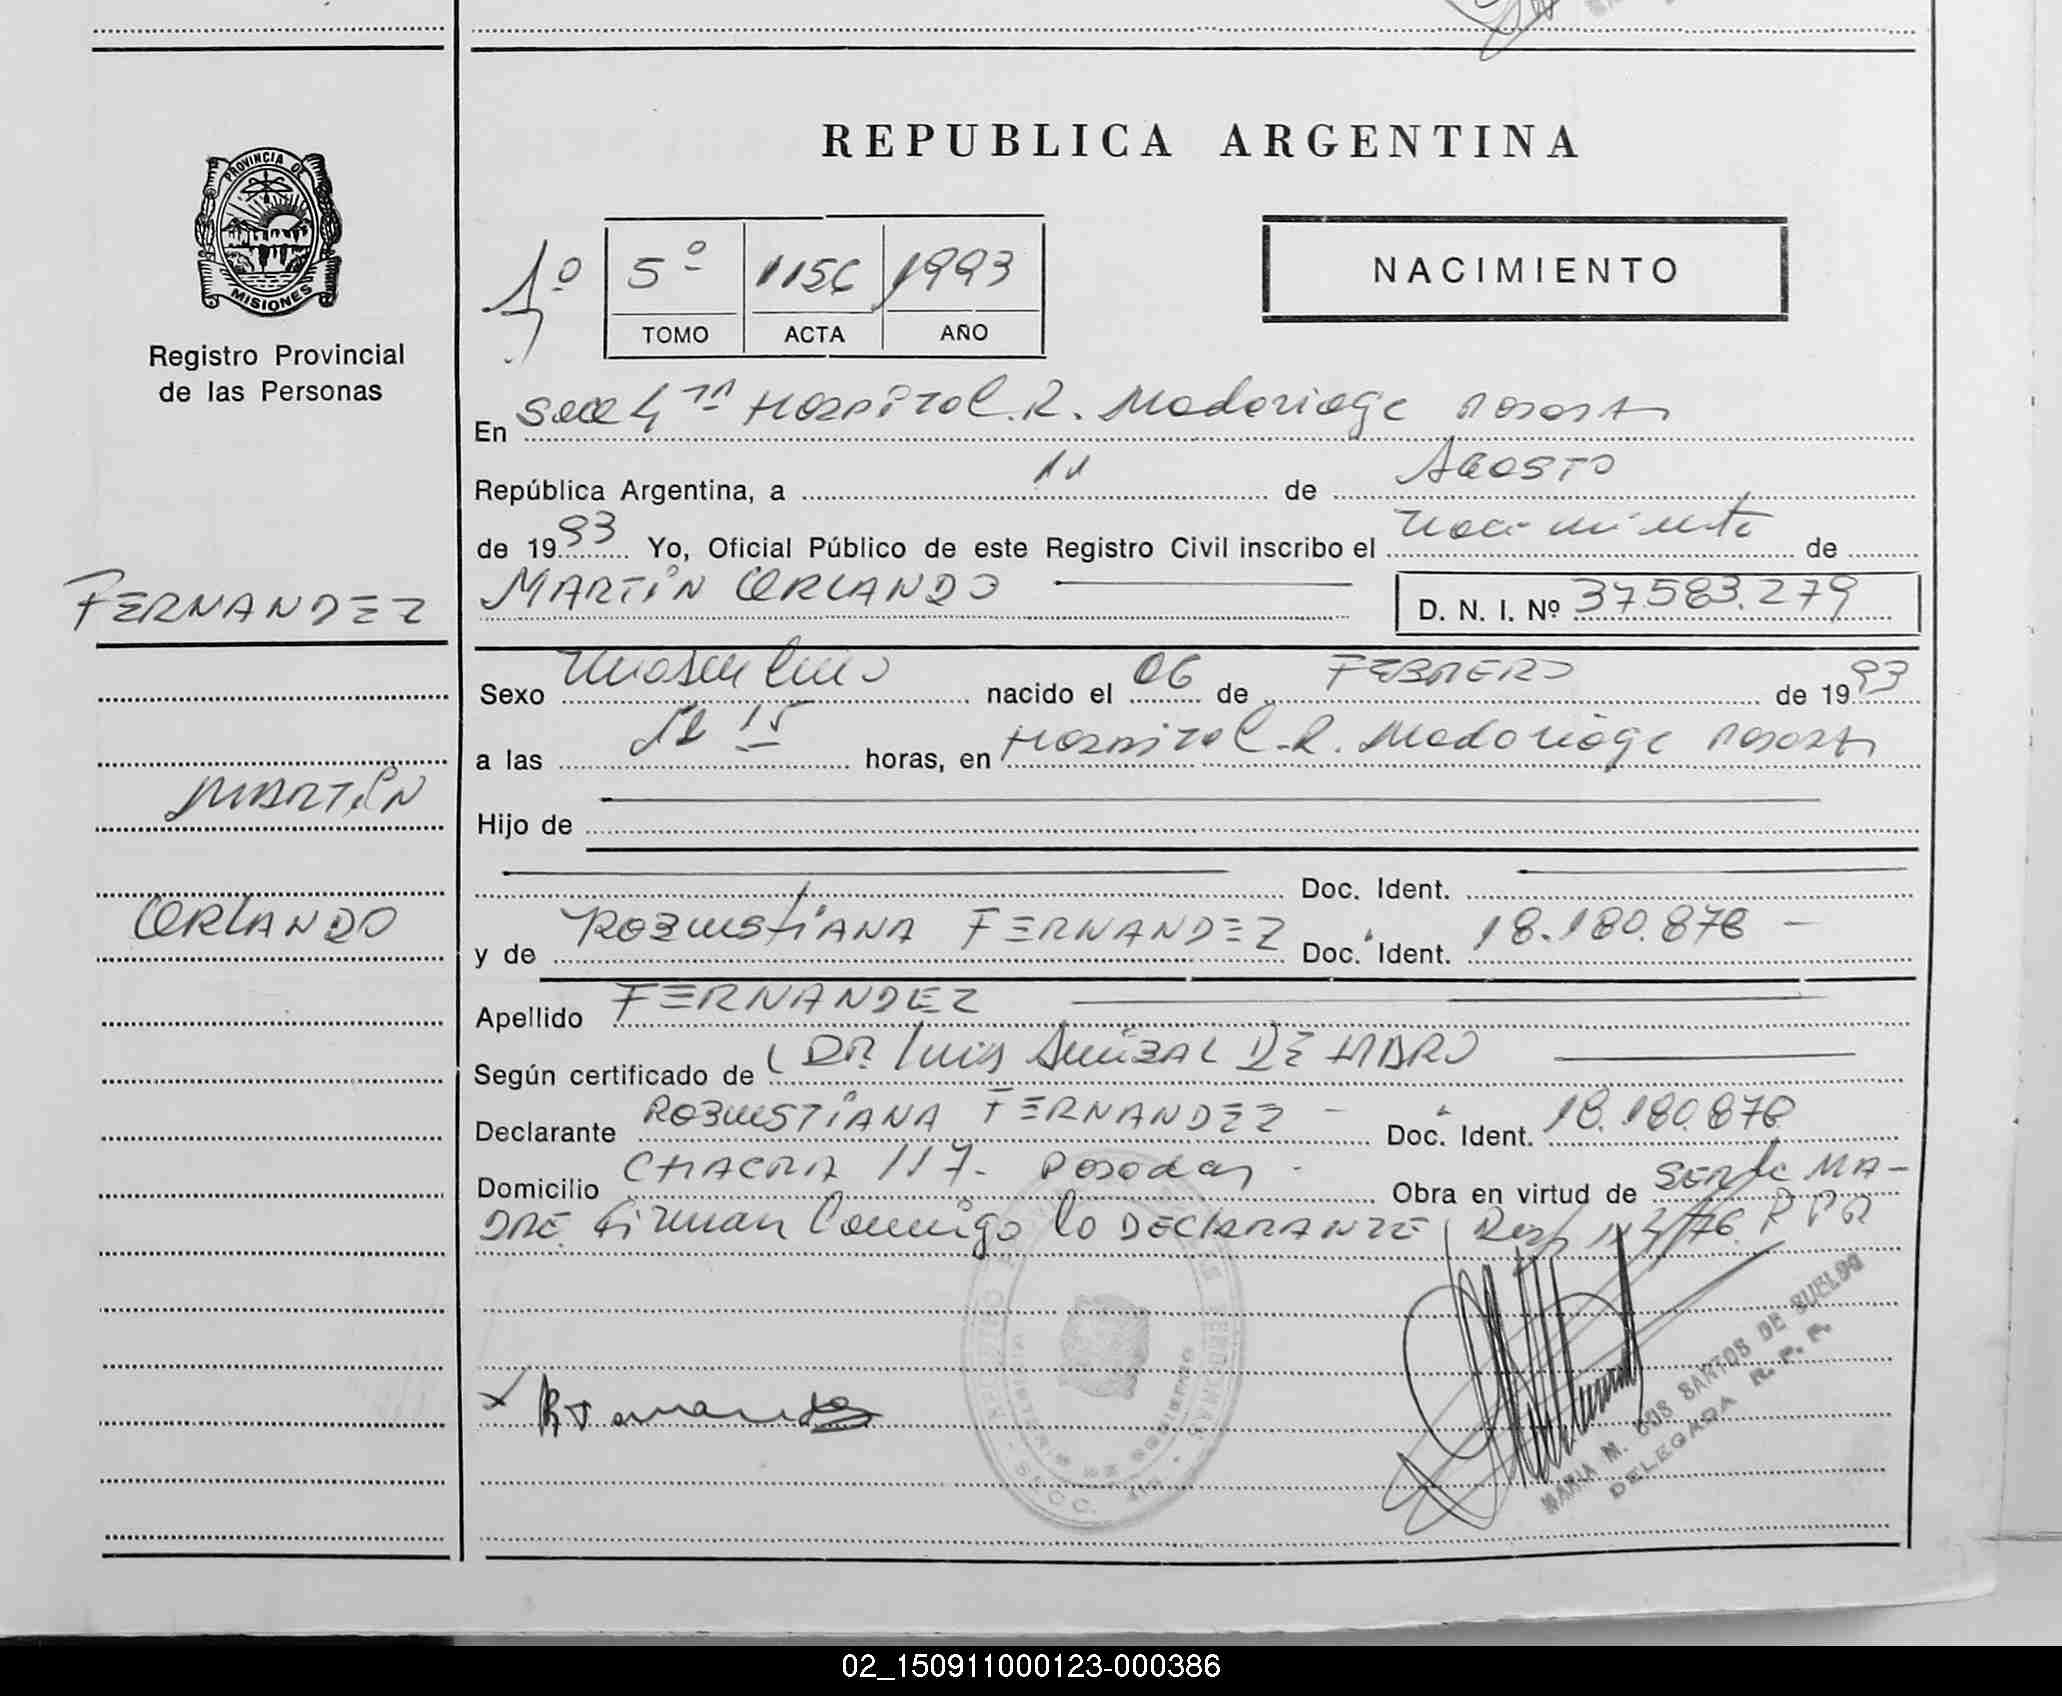 REPUBLICA ARGENTINA
PROVINCIA DE
MISIONES
Registro Provincial
de las Personas
1º 5º 1156 1993
TOMO ACTA AÑO
NACIMIENTO
En Secc 4ta Hospital R. Madariaga Posadas
República Argentina, a 11 de Agosto
de 1993 Yo, Oficial Público de este Registro Civil inscribo el Nacimiento de
FERNANDEZ
MARTIN ORLANDO D. N. I. Nº 37.583.279
Sexo Masculino nacido el 06 de FEBRERO de 1993
a las 12 15 horas, en Hospital R. Madariaga Posadas
MARTIN
Hijo de
Doc. Ident.
ORLANDO
y de ROBUSTIANA FERNANDEZ Doc. Ident. 18.180.878 -
Apellido FERNANDEZ
Según certificado de DR. Luis Anibal DE HARO
Declarante ROBUSTIANA FERNANDEZ - Doc. Ident. 18.180.878
Domicilio CHACRA 117- Posadas - Obra en virtud de SER la MA-
DRE. Firman Conmigo la DECLARANTE
MARIA M. DOS SANTOS DE SUELDO
DELEGADA R. P. P.
02_150911000123-000386